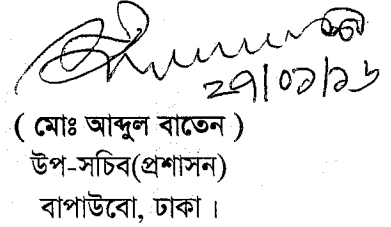 ২৭/০১/১৬
( মোঃ আব্দুল বাতেন )
উপ-সচিব(প্রশাসন)
বাপাউবো, ঢাকা ।